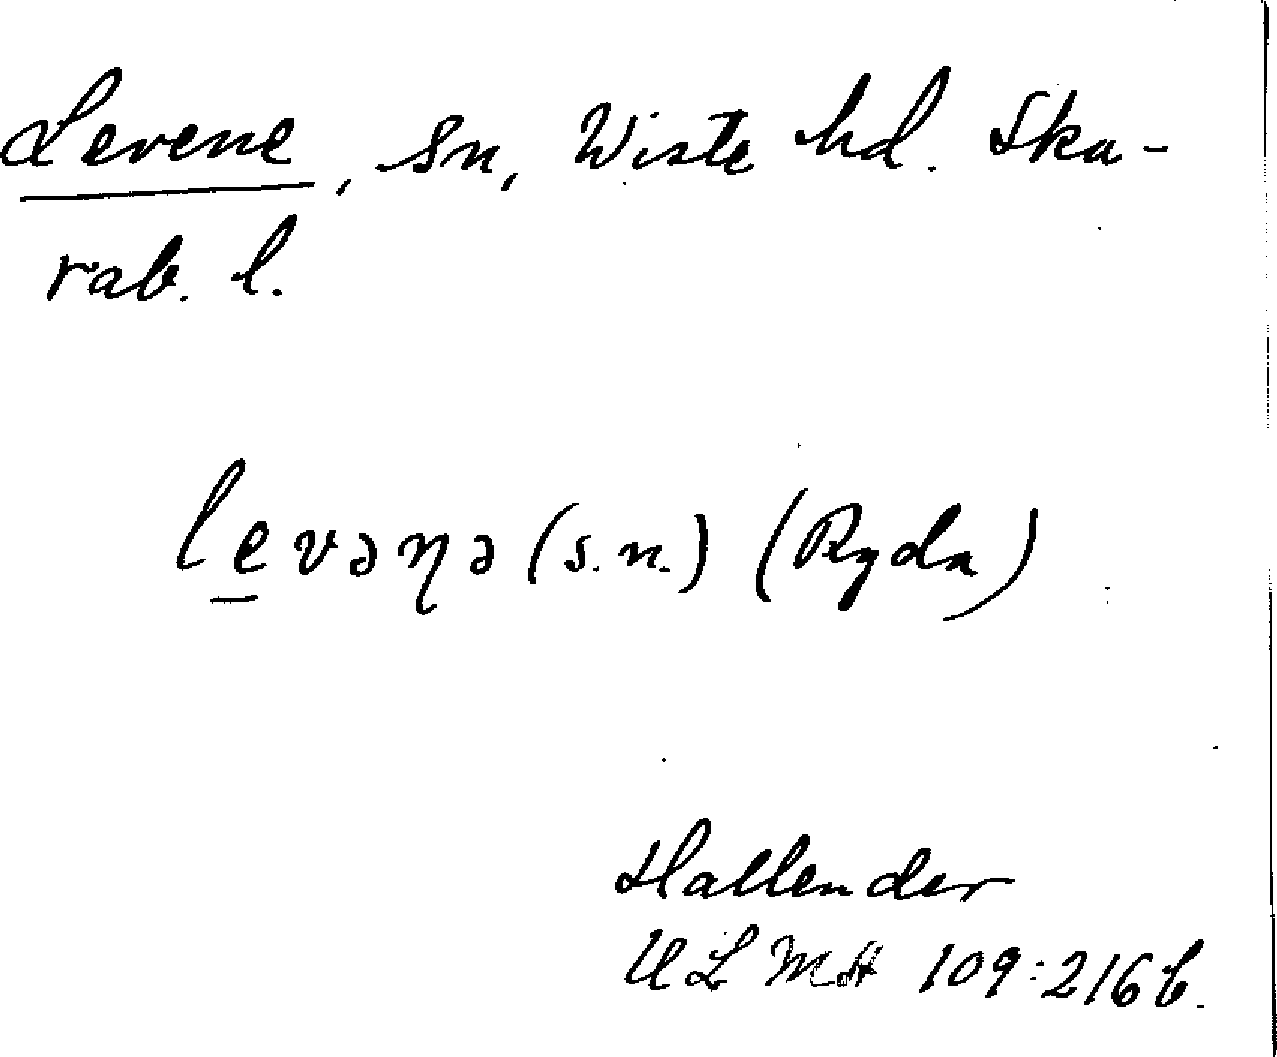 Levene, sn, Wiste hd. Ska-
rab. l.
levənə (s.n.) (Ryda)
Hallender
ULMA 109:216b.